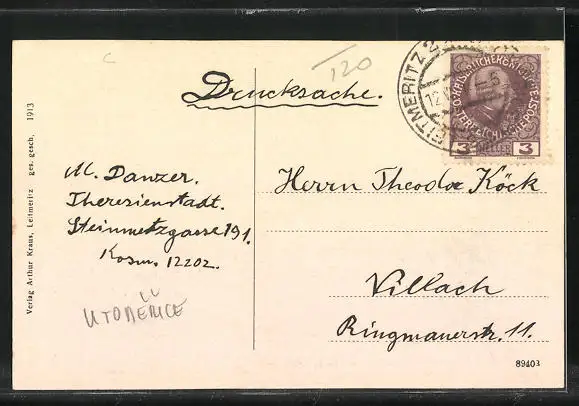 120
Drucksache.
LEITMERITZ 2
12
KAISERLICHE KÖNIGLICHE
ÖSTERREICHISCHE POST
3 HELLER 3
M. Danzer.
Theresienstadt.
Steinmetzgasse 191.
Kosm. 12202.
Herrn Theodor Köck
Villach
Ringmauerstr. 11.
89403
Verlag Arthur Kraus, Leitmeritz ges. gesch. 1913